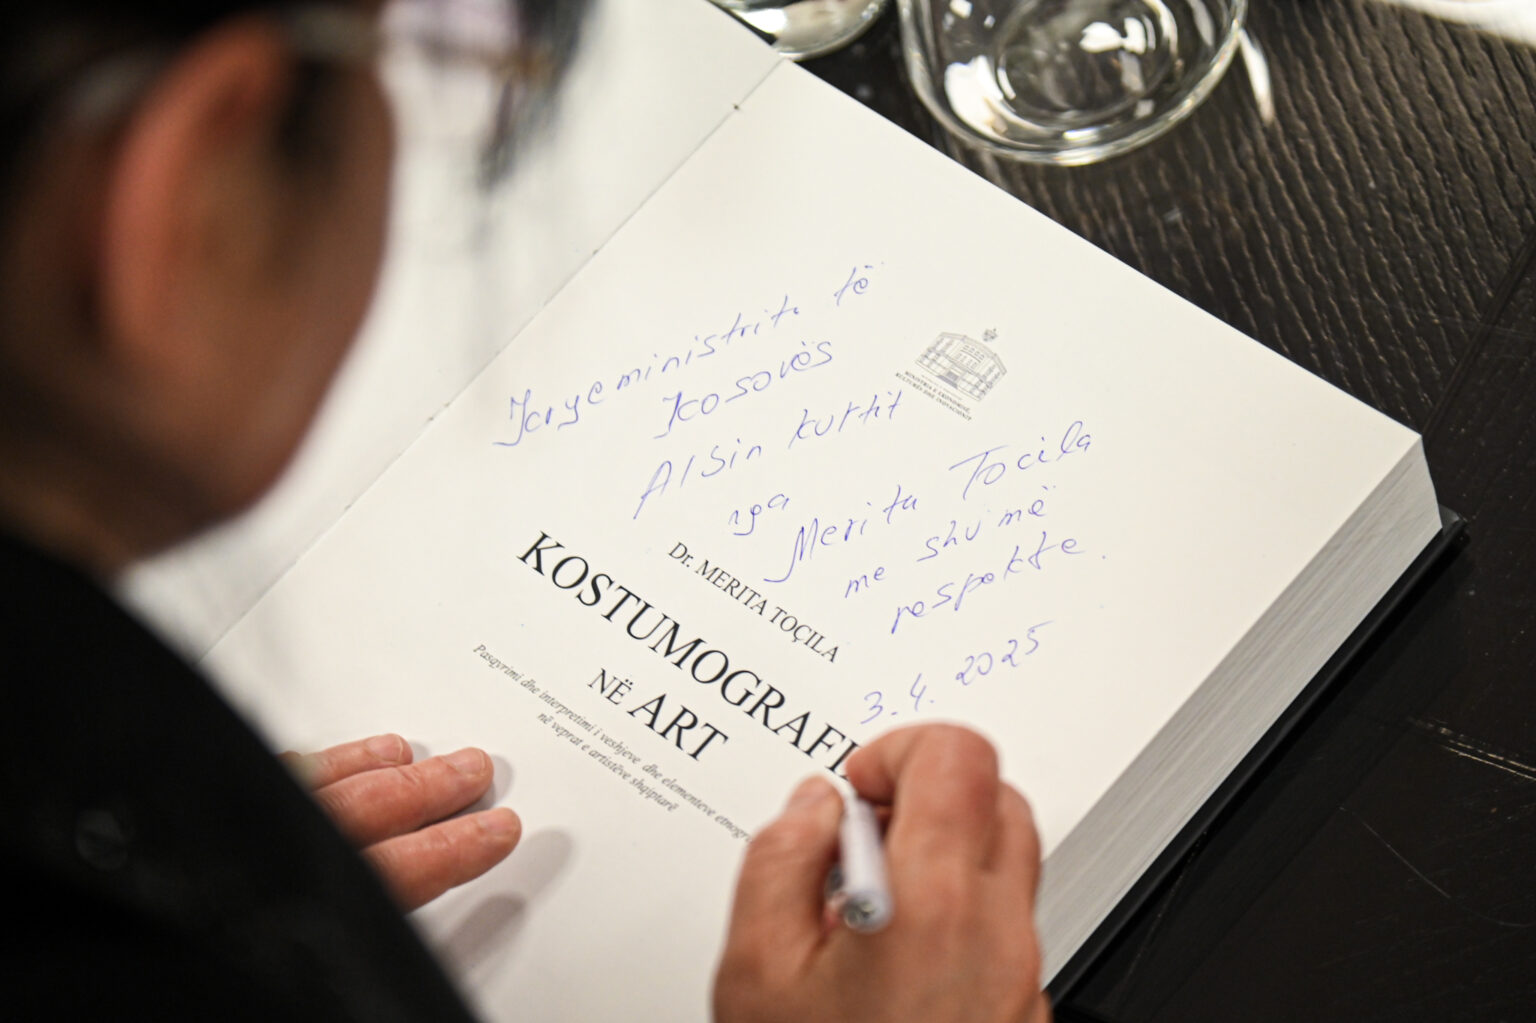 Kryeministrit të
Kosovës
Albin Kurtit
nga
Merita Tocila
me shumë
respekte.
3.4.2025
MINISTRIA E EKONOMISË,
KULTURËS DHE INOVACIONIT
Dr. MERITA TOÇILA
KOSTUMOGRAFI
NË ART
Pasqyrimi dhe interpretimi i veshjeve dhe elementeve
në veprat e artistëve shqiptarë